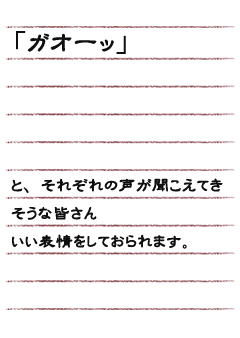 「ガオーッ」
と、それぞれの声が聞こえてき
そうな皆さん
いい表情をしておられます。